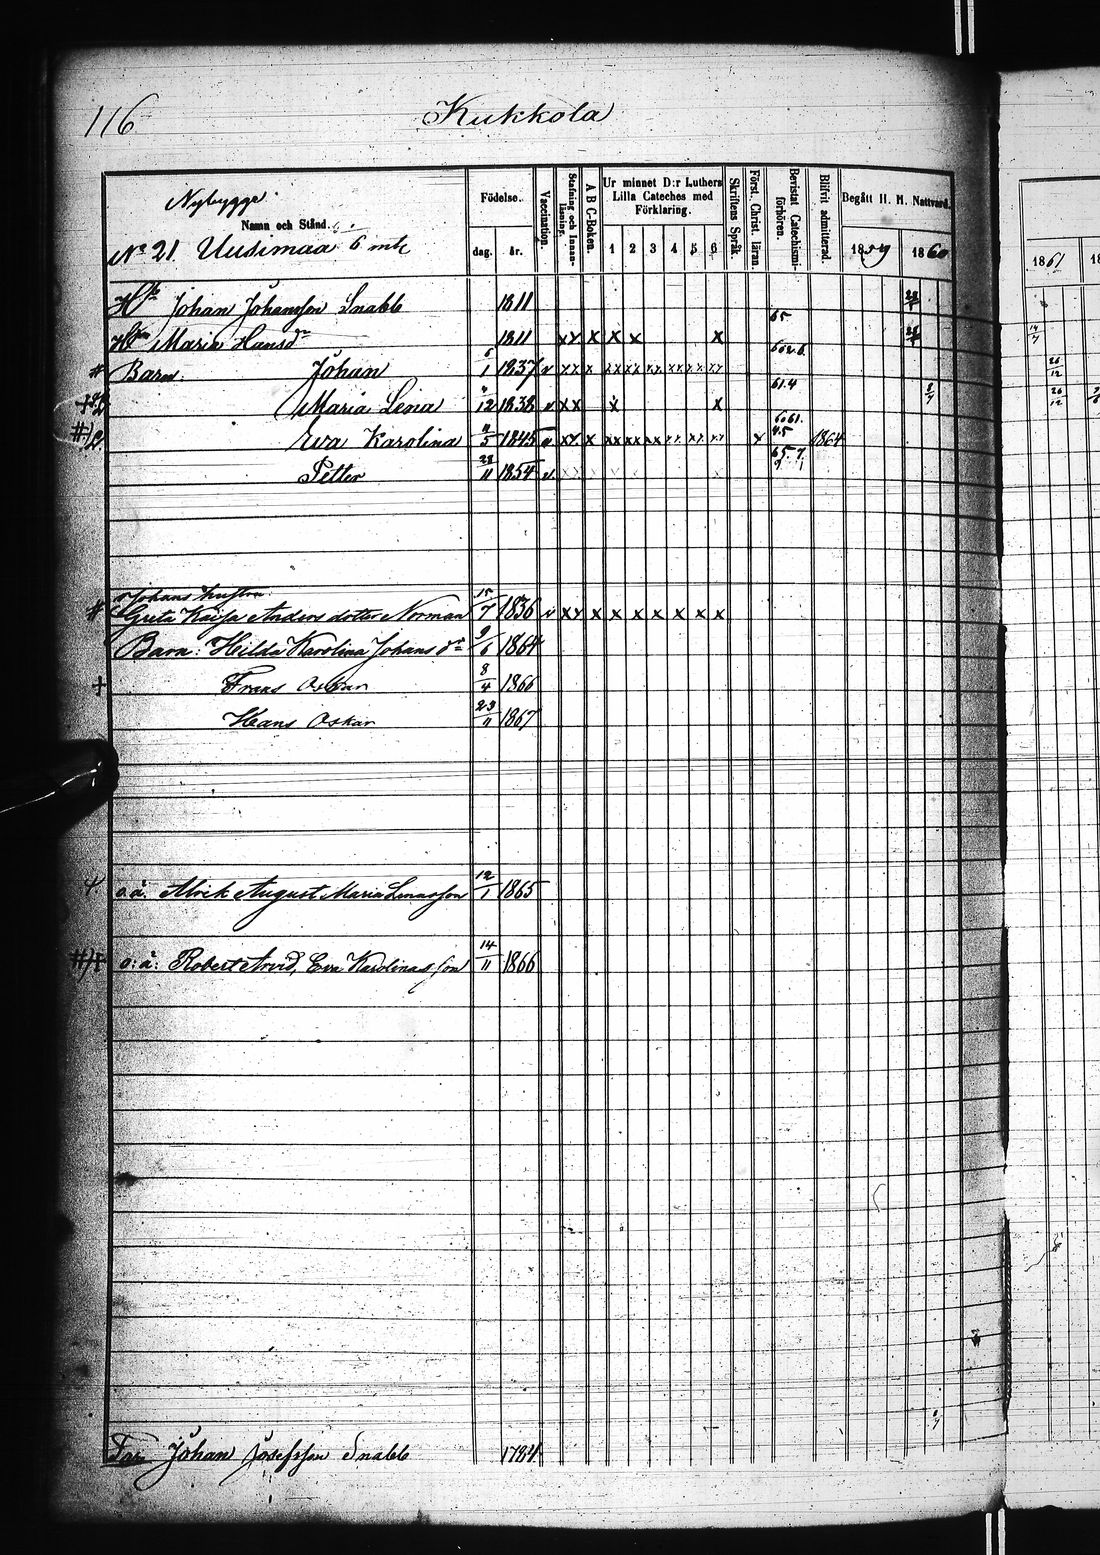 116 Kukkola
Nybygge
Namn och Stånd.
No 21 Uusimaa 6 mtl
Födelse.
dag. år.
Vaccination.
Stafning och Innanläsning.
A B C-Boken.
Ur minnet D:r Luthers
Lilla Cateches med
Förklaring.
1 2 3 4 5 6
Skriftens Språk.
Först. Christ. läran.
Bevistat Catechismiförhören.
Blifvit admitterad.
Begått H. H. Nattvard.
1859 1860 1861
Johan Johansson Snabb 1811
65
Maria Hansdr 1811 x x x x x x
# Barn: Johan 1837 v x x x
61.4
Maria Lena 12 1838 v x x x x
Eva Karolina 11/5 1845 v x x x 1864
Petter 28/11 1854 v
Johans hustru:
# Greta Kaisa Anders dotter Norman 15/7 1836 v x x x x x x x x x
Barn: Hilda Karolina Johans dr 9/6 1864
+ Frans Oskar 8/4 1866
Hans Oskar 23/11 1867
o.ä. Alrik August Maria Lenasson 12/1 1865
#)+ o:ä: Robert Arvid, Eva Karolinas son 14/11 1866
Far Johan Josefsson Snabb 1784